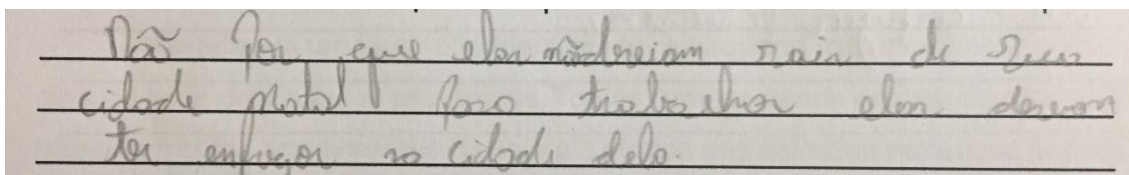 Não Por que eles não deveriam sair de suas
cidade natal para trabalhar eles devem
ter empregos na cidade dele.